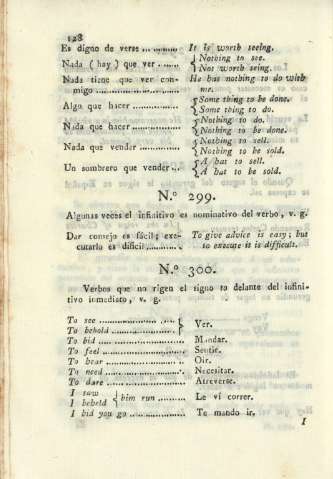 128
Es digno de verse ........... It is worth seeing.
Nada ( hay ) que ver ...... { Nothing to see.
Not worth seing.
Nada tiene que ver con- He has nothing to do with
migo .................... me.
Algo que hacer .............. { Some thing to be done.
Some thing to do.
Nada que hacer ............. { Nothing to do.
Nothing to be done.
Nada que vender ........... { Nothing to sell.
Nothing to be sold.
Un sombrero que vender ... { A hat to sell.
A hat to be sold.
N.º 299.
Algunas veces el infinitivo es nominativo del verbo, v. g.
Dar consejo es fácil; exe- To give advice is easy; but
cutarlo es dificil............ to execute it is difficult.
N.º 300.
Verbos que no rigen el signo to delante del infini-
tivo inmediato, v. g.
To see .......................... } Ver.
To behold ....................
To bid .......................... Mandar.
To feel .......................... Sentir.
To hear ......................... Oir.
To need ........................ Necesitar.
To dare ........................ Atreverse.
I saw } him run ......... Le ví correr.
I beheld
I bid you go ................. Te mando ir.
I